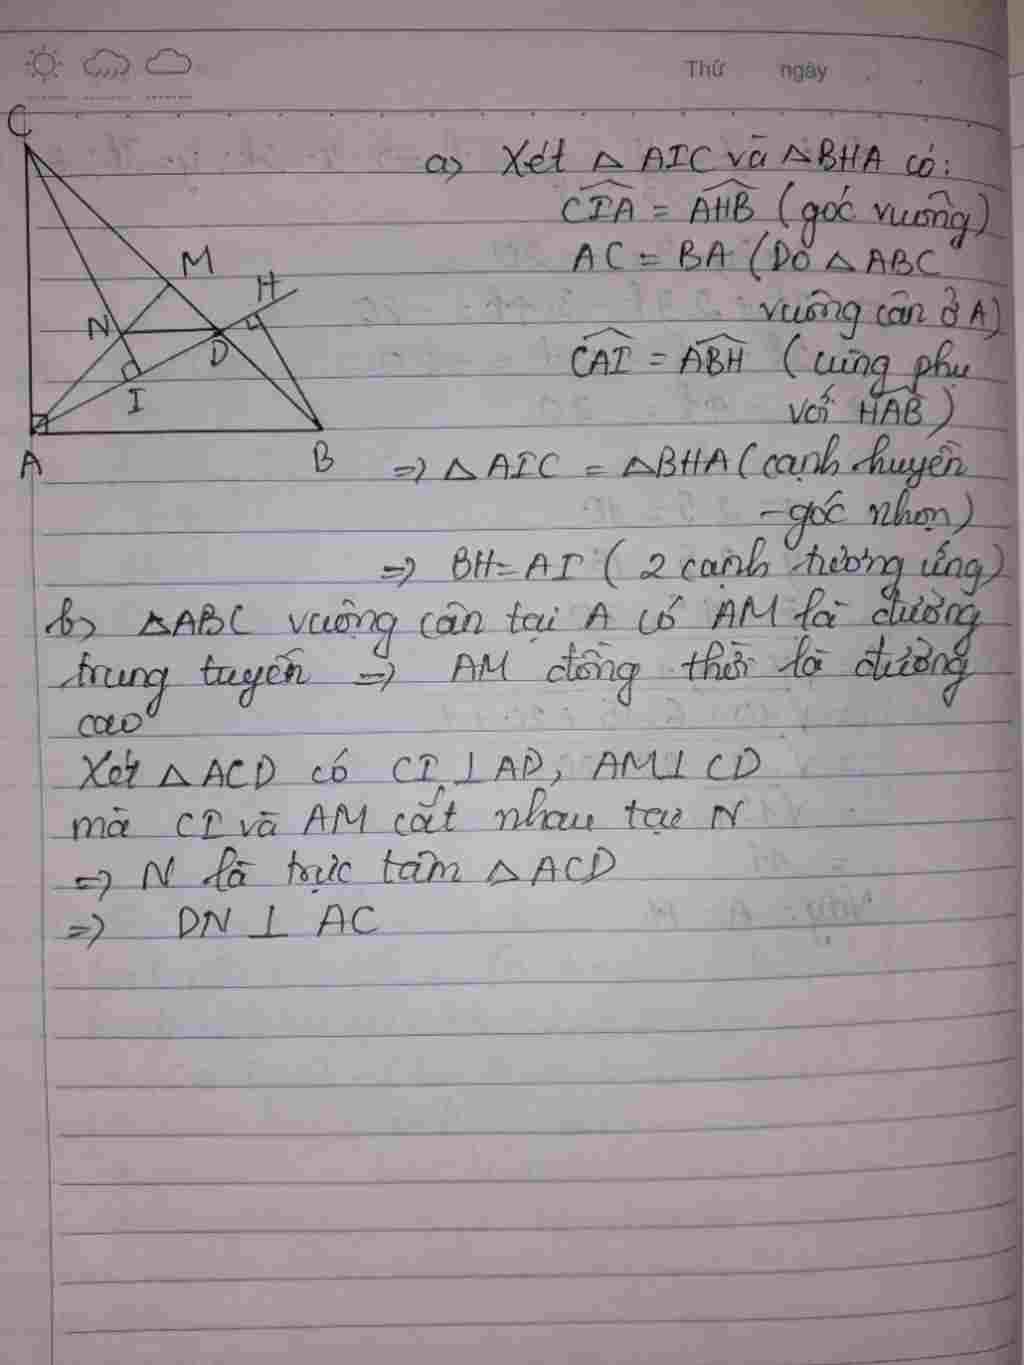 Thứ ngày
C
M
H
N
D
I
A
B
a) Xét △ AIC và △BHA có:
$\widehat{CIA}$ = $\widehat{AHB}$ (góc vuông)
AC = BA (Do △ ABC
vuông cân ở A)
$\widehat{CAI}$ = $\widehat{ABH}$ (cùng phụ
với $\widehat{HAB}$)
=> △ AIC = △BHA (cạnh huyền
-góc nhọn)
=> BH = AI ( 2 cạnh tương ứng)
b) △ABC vuông cân tại A có AM là đường
trung tuyến => AM đồng thời là đường
cao
Xét △ ACD có CI ⊥ AD, AM ⊥ CD
mà CI và AM cắt nhau tại N
=> N là trực tâm △ ACD
=> DN ⊥ AC